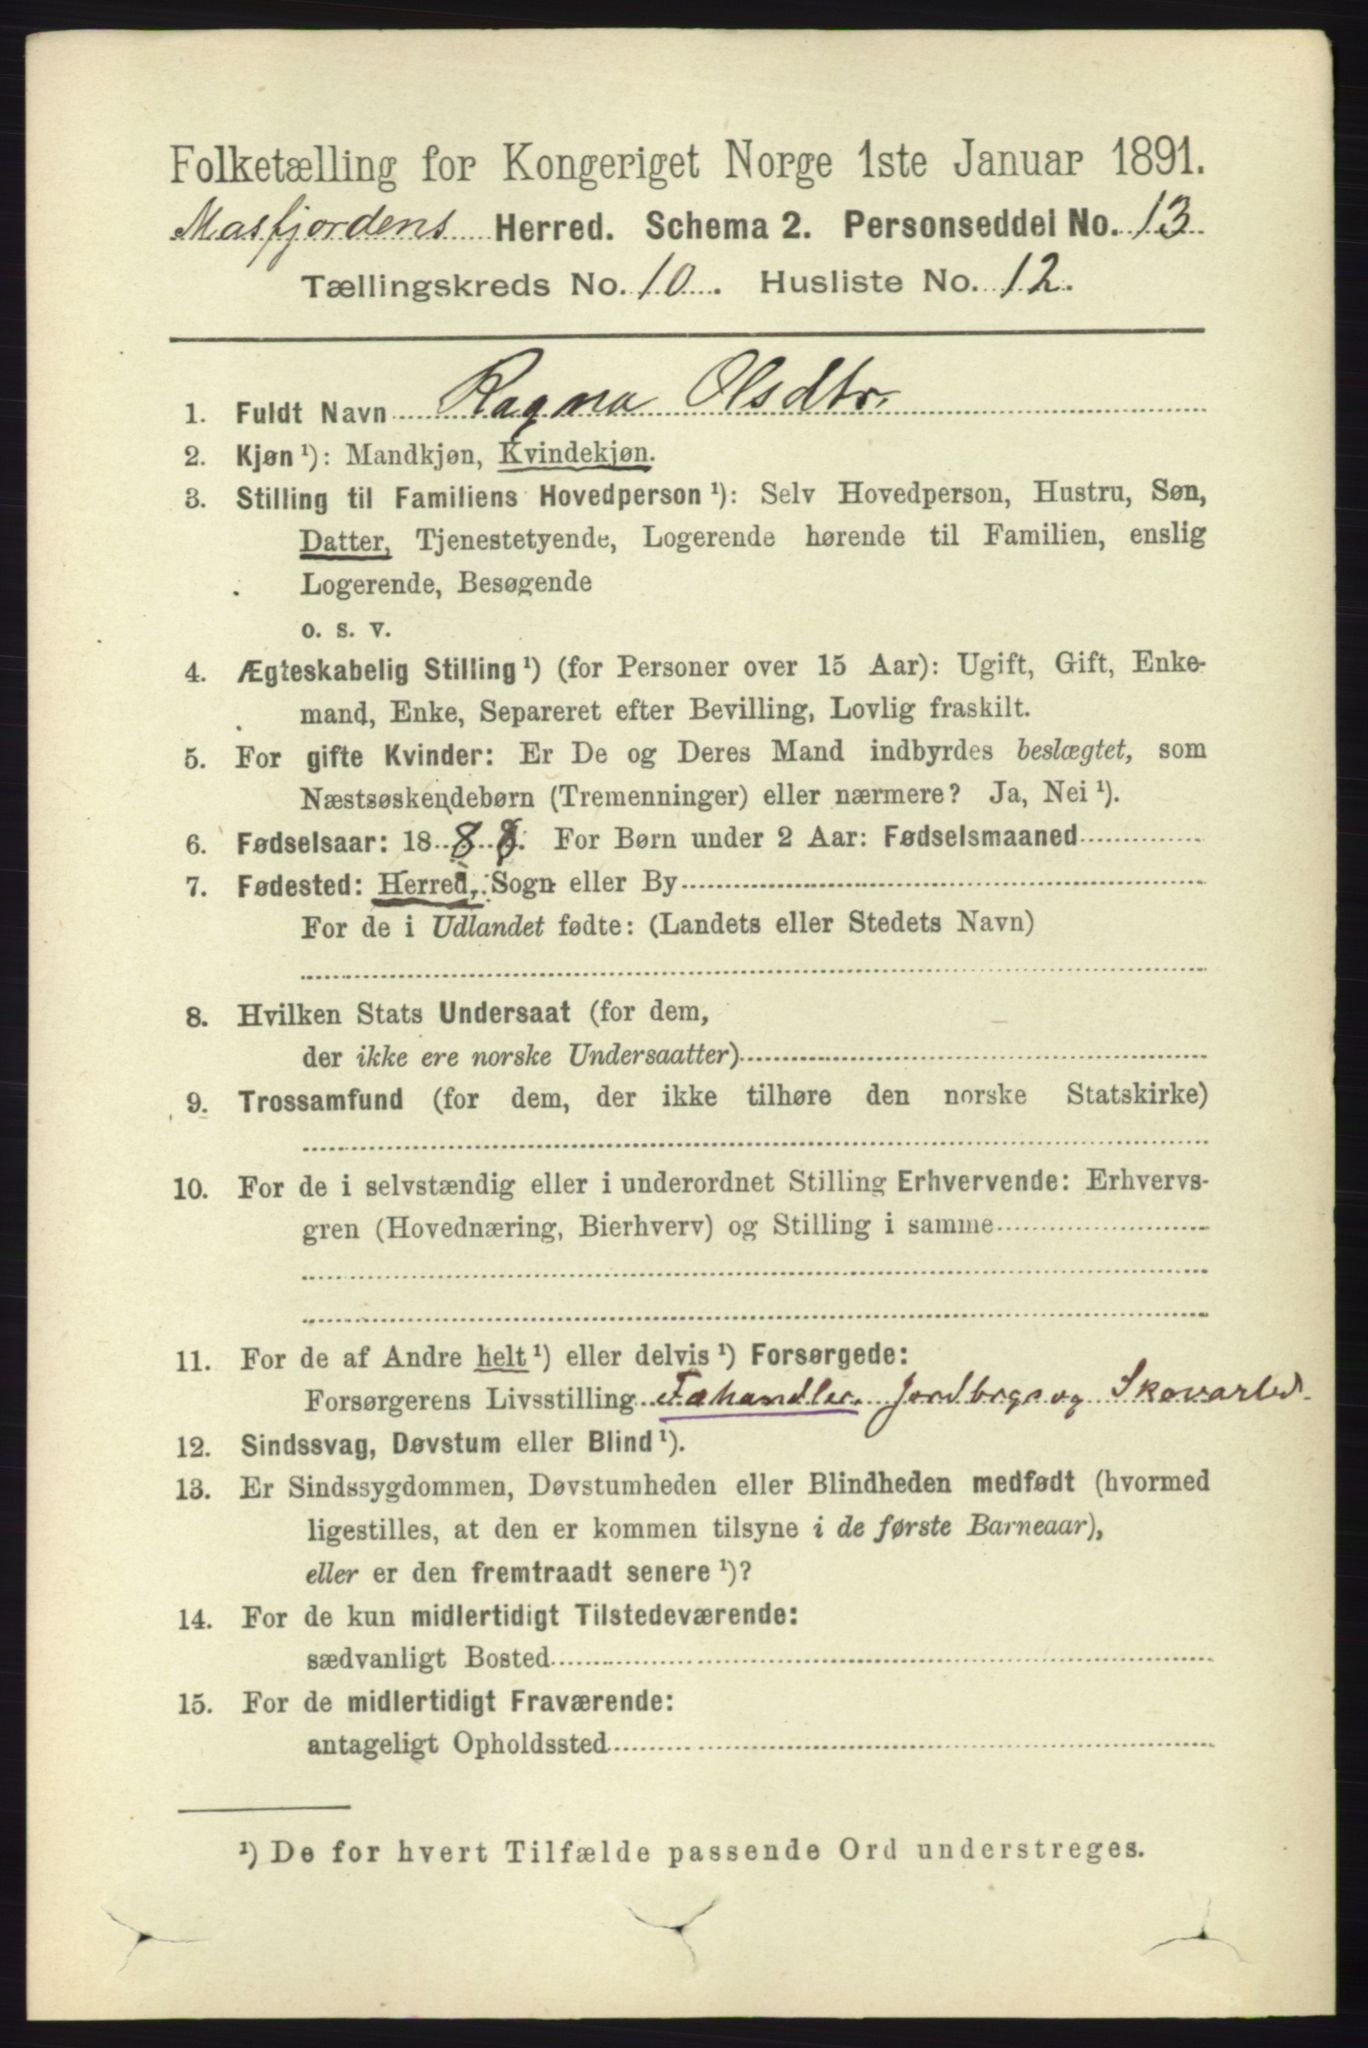 Folketælling for Kongeriget Norge 1ste Januar 1891.
Masfjordens Herred. Schema 2. Personseddel No. 13
Tællingskreds No. 10. Husliste No. 12.
1. Fuldt Navn Ragna Olsdtr.
2. Kjøn ¹): Mandkjøn, Kvindekjøn.
3. Stilling til Familiens Hovedperson ¹): Selv Hovedperson, Hustru, Søn,
Datter, Tjenestetyende, Logerende hørende til Familien, enslig
Logerende, Besøgende
o. s. v.
4. Ægteskabelig Stilling ¹) (for Personer over 15 Aar): Ugift, Gift, Enke-
mand, Enke, Separeret efter Bevilling, Lovlig fraskilt.
5. For gifte Kvinder: Er De og Deres Mand indbyrdes beslægtet, som
Næstsøskendebørn (Tremenninger) eller nærmere? Ja, Nei ¹).
6. Fødselsaar: 18 8 8. For Børn under 2 Aar: Fødselsmaaned
7. Fødested: Herred, Sogn eller By
For de i Udlandet fødte: (Landets eller Stedets Navn)
8. Hvilken Stats Undersaat (for dem,
der ikke ere norske Undersaatter)
9. Trossamfund (for dem, der ikke tilhøre den norske Statskirke)
10. For de i selvstændig eller i underordnet Stilling Erhvervende: Erhvervs-
gren (Hovednæring, Bierhverv) og Stilling i samme
11. For de af Andre helt ¹) eller delvis ¹) Forsørgede:
Forsørgerens Livsstilling Fæhandler. Jordbrgs og Skovarbed.
12. Sindssvag, Døvstum eller Blind ¹).
13. Er Sindssygdommen, Døvstumheden eller Blindheden medfødt (hvormed
ligestilles, at den er kommen tilsyne i de første Barneaar),
eller er den fremtraadt senere ¹)?
14. For de kun midlertidigt Tilstedeværende:
sædvanligt Bosted
15. For de midlertidigt Fraværende:
antageligt Opholdssted
¹) De for hvert Tilfælde passende Ord understreges.